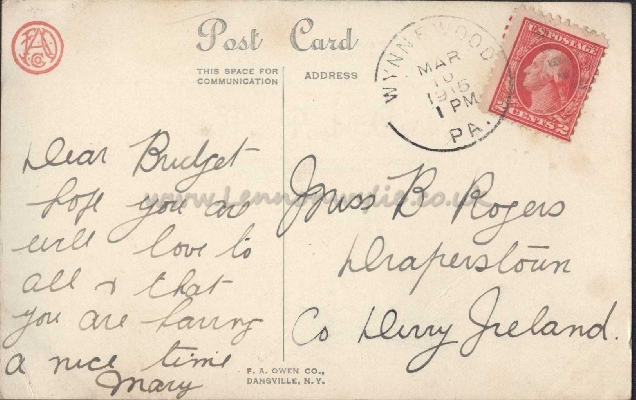 Post Card
THIS SPACE FOR
COMMUNICATION
ADDRESS
WYNNEWOOD
MAR
1916
1 PM
PA.
U.S. POSTAGE
2 CENTS 2
Dear Bridget
hope you are
well love to
all & that
you are having
a nice time
Mary
Miss B Rogers
Draperstown
Co Derry Ireland.
F. A. OWEN CO.,
DANSVILLE, N.Y.